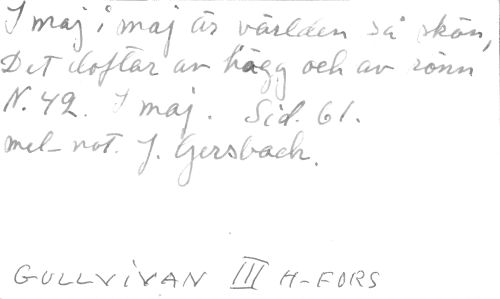 I maj i maj är världen så skön,
Det doftar av hägg och av rönn
N. 42. I maj. Sid. 61.
mel-not. J. Gersbach.
GULLVIVAN III H-FORS